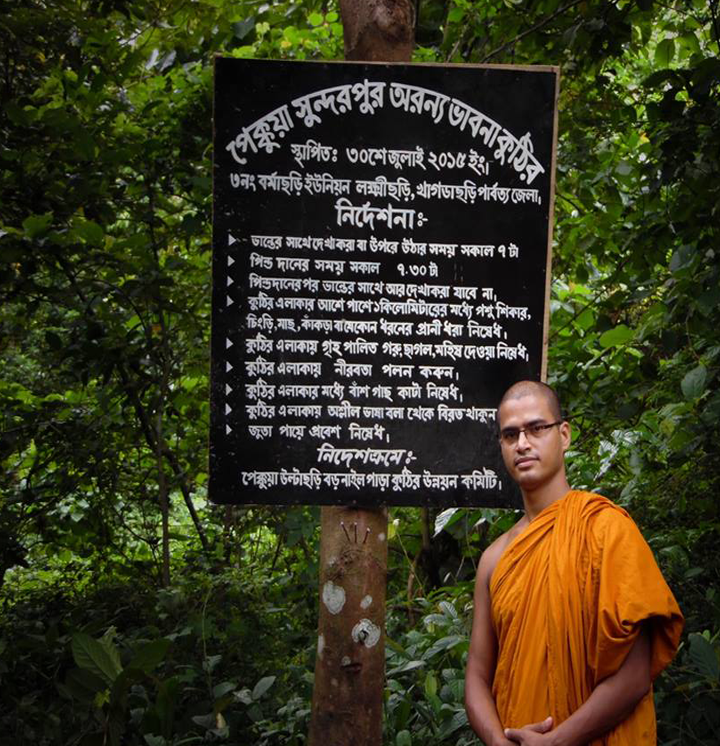 পেক্কুয়া সুন্দরপুর অরন্য ভাবনা কুঠির
স্থাপিতঃ ৩০শে জুলাই ২০১৫ ইং,
৩নং বর্মাছড়ি ইউনিয়ন লক্ষ্মীছড়ি, খাগড়াছড়ি পার্বত্য জেলা,
নির্দেশনাঃ-
ভান্তের সাথে দেখা করা বা উপরে উঠার সময় সকাল ৭ টা
পিন্ড দানের সময় সকাল ৭.৩০ টা
পিন্ডদানের পর ভান্তের সাথে আর দেখা করা যাবে না,
কুঠির এলাকার আশে পাশে ১কিলোমিটারের মধ্যে পশু শিকার,
চিংড়ি, মাছ, কাঁকড়া বা যেকোন ধরনের প্রানী ধরা নিষেধ,
কুঠির এলাকায় গৃহ পালিত গরু, ছাগল, মহিষ দেওয়া নিষেধ,
কুঠির এলাকায় নীরবতা পলন করুন,
কুঠির এলাকার মধ্যে বাঁশ গাছ কাটা নিষেধ,
কুঠির এলাকায় অশ্লীল ভাষা বলা থেকে বিরত থাকুন
জুতা পায়ে প্রবেশ নিষেধ,
নিদেশক্রমেঃ-
পেক্কুয়া উল্টাছড়ি বড়নাইল পাড়া কুঠির উন্নয়ন কমিটি,